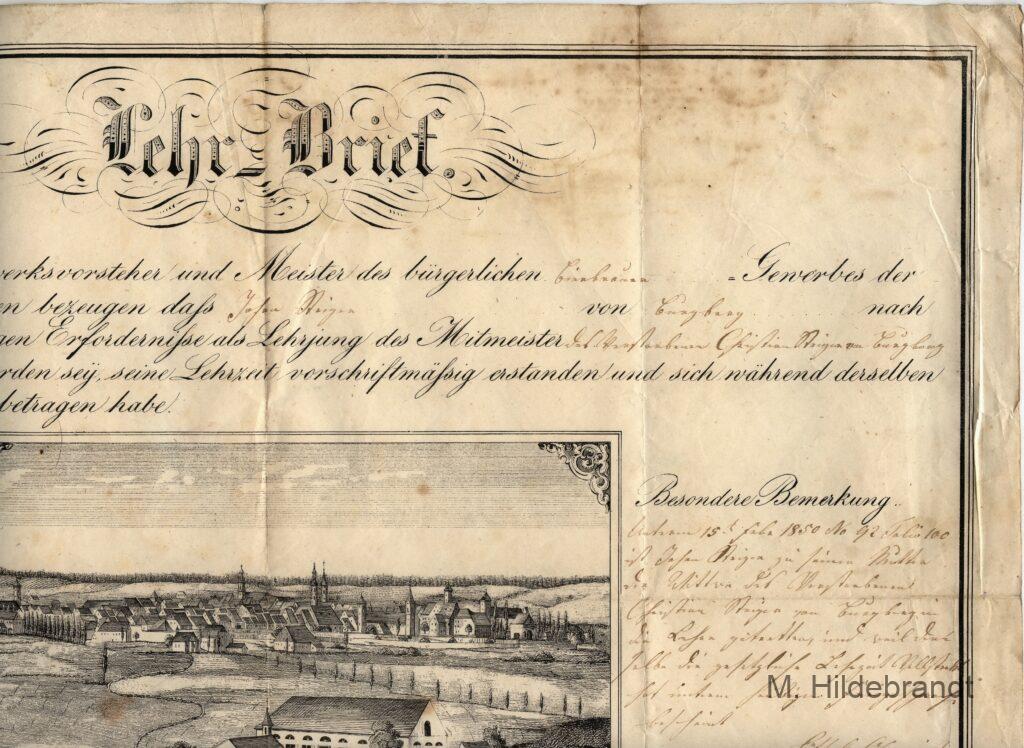 Lehr-Brief.
werksvorsteher und Meister des bürgerlichen Bierbrauer =Gewerbes der
en bezeugen daſs Johan Steiger von Burgberg nach
gen Erforderniſse als Lehrjung des Mitmeister des Verstorbenen Christian Steiger von Burgberg
orden sey, seine Lehrzeit vorschriftmäſsig erstanden und sich während derselben
betragen habe.
Besondere Bemerkung.
Unterm 15t Febr 1850 No 92 Folio 100
ist Johan Steiger zu seiner Mutter
der Wittwe des Verstorbenen
Christian Steiger von Burgberg in
die Lehre getretten, und weil der
selbe die gesetzliche Lehrzeit
hat
bescheint
M. Hildebrandt